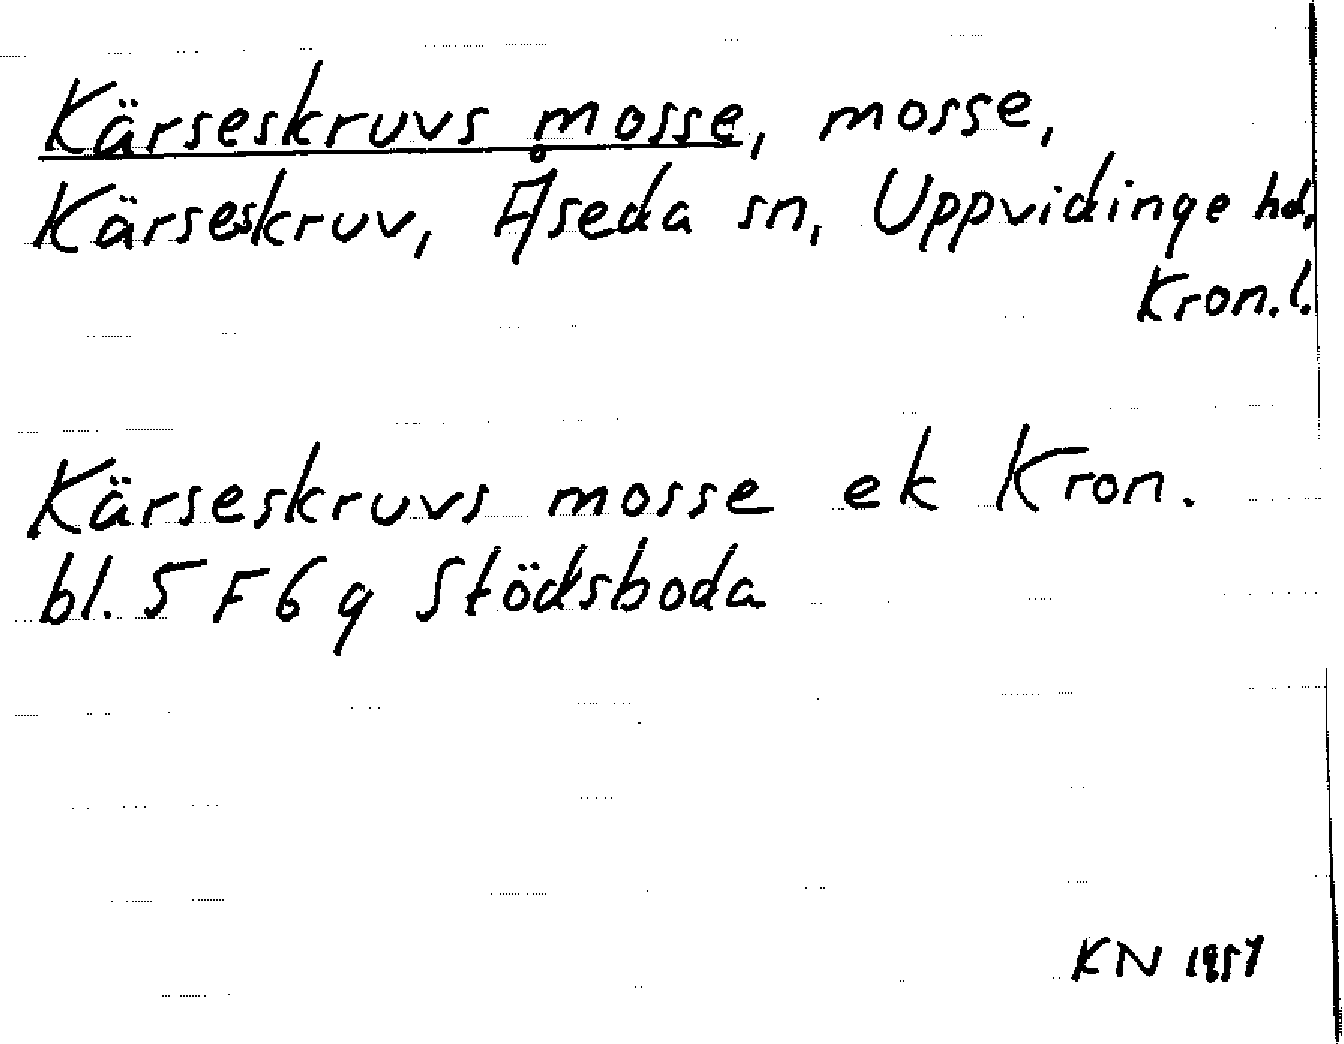 Kärseskruvs mosse, mosse,
Kärseskruv, Åseda sn, Uppvidinge hd,
Kron.l.
Kärseskruvs mosse ek Kron.
bl. 5 F 6 g Stödsboda
KN 1957